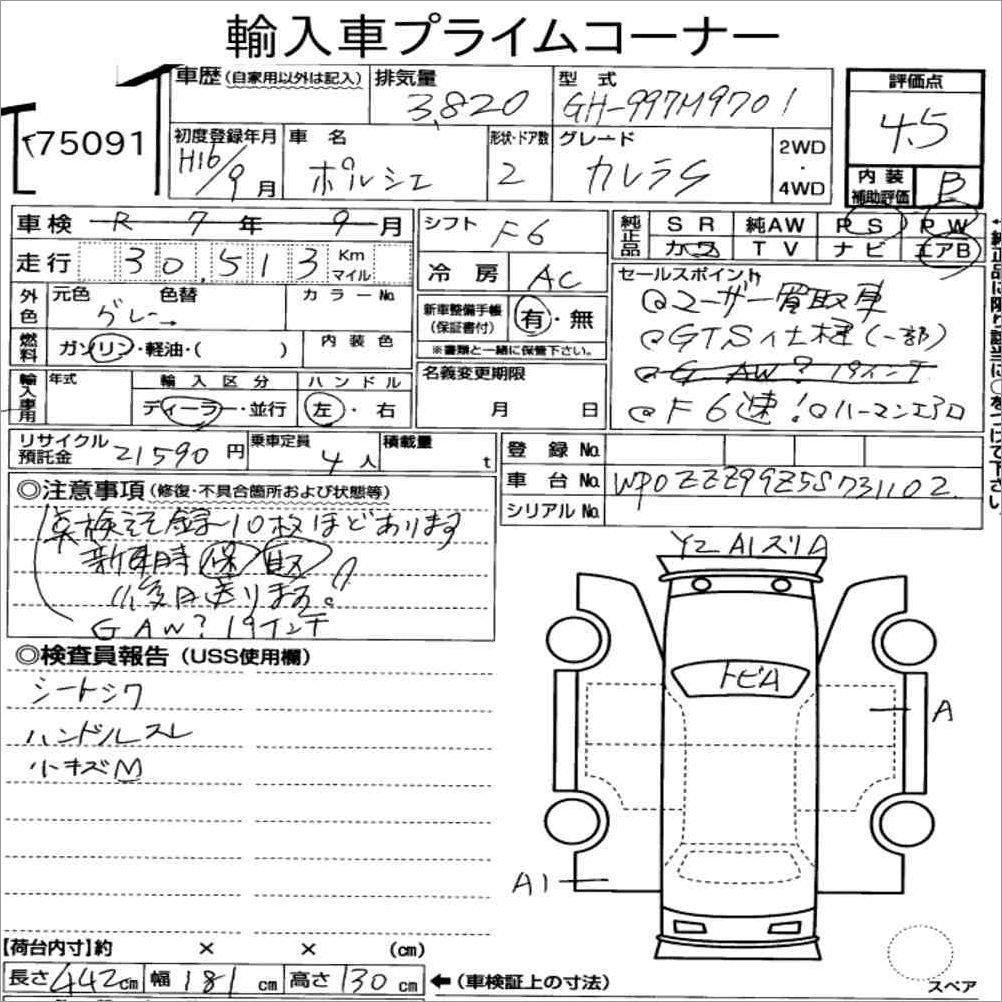 輸入車プライムコーナー
75091
車歴 (自家用以外は記入)
排気量 3,820
型式 GH-997M9701
評価点 4.5
初度登録年月 H16/9月
車名 ポルシェ
形状・ドア数 2
グレード カレラS
2WD・4WD
内装補助評価 B
車検 R 7年 9月
シフト F6
純正品 SR 純AW PS PW
カワ TV ナビ エアB
走行 30,513 Km マイル
冷房 AC
セールスポイント
@ユーザー買取車
@GTS仕様(一部)
@G AW? 19インチ
@F6速! @ハーマンエアロ
外色 元色 グレー→ 色替 カラーNo
新車整備手帳(保証書付) 有・無
※書類と一緒に保管下さい。
燃料 ガソリン・軽油・( )
内装色
輸入車用 年式
輸入区分 ディーラー・並行
ハンドル 左・右
名義変更期限 月 日
←純正品に限り該当に○をつけて下さい
リサイクル預託金 21590円
乗車定員 4人
積載量 t
登録No.
車台No. WP0ZZZ99Z5S731102
シリアルNo.
◎注意事項(修復・不具合箇所および状態等)
点検記録〜10枚ほどあります
新車時保 取
後日送ります!
G AW? 19インチ
◎検査員報告(USS使用欄)
シートシワ
ハンドルスレ
小キズM
Y2 A1スリA
トビA
A
A1
【荷台内寸】約 × × (cm)
長さ442cm 幅181cm 高さ130cm ←(車検証上の寸法)
スペア